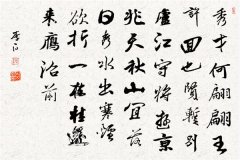 秀才何翩翩王
許回也賢暫別
廬江守將遊京
兆天秋山宜落
日秀水出寒煙
欲折一枝桂還
來鴈沼前